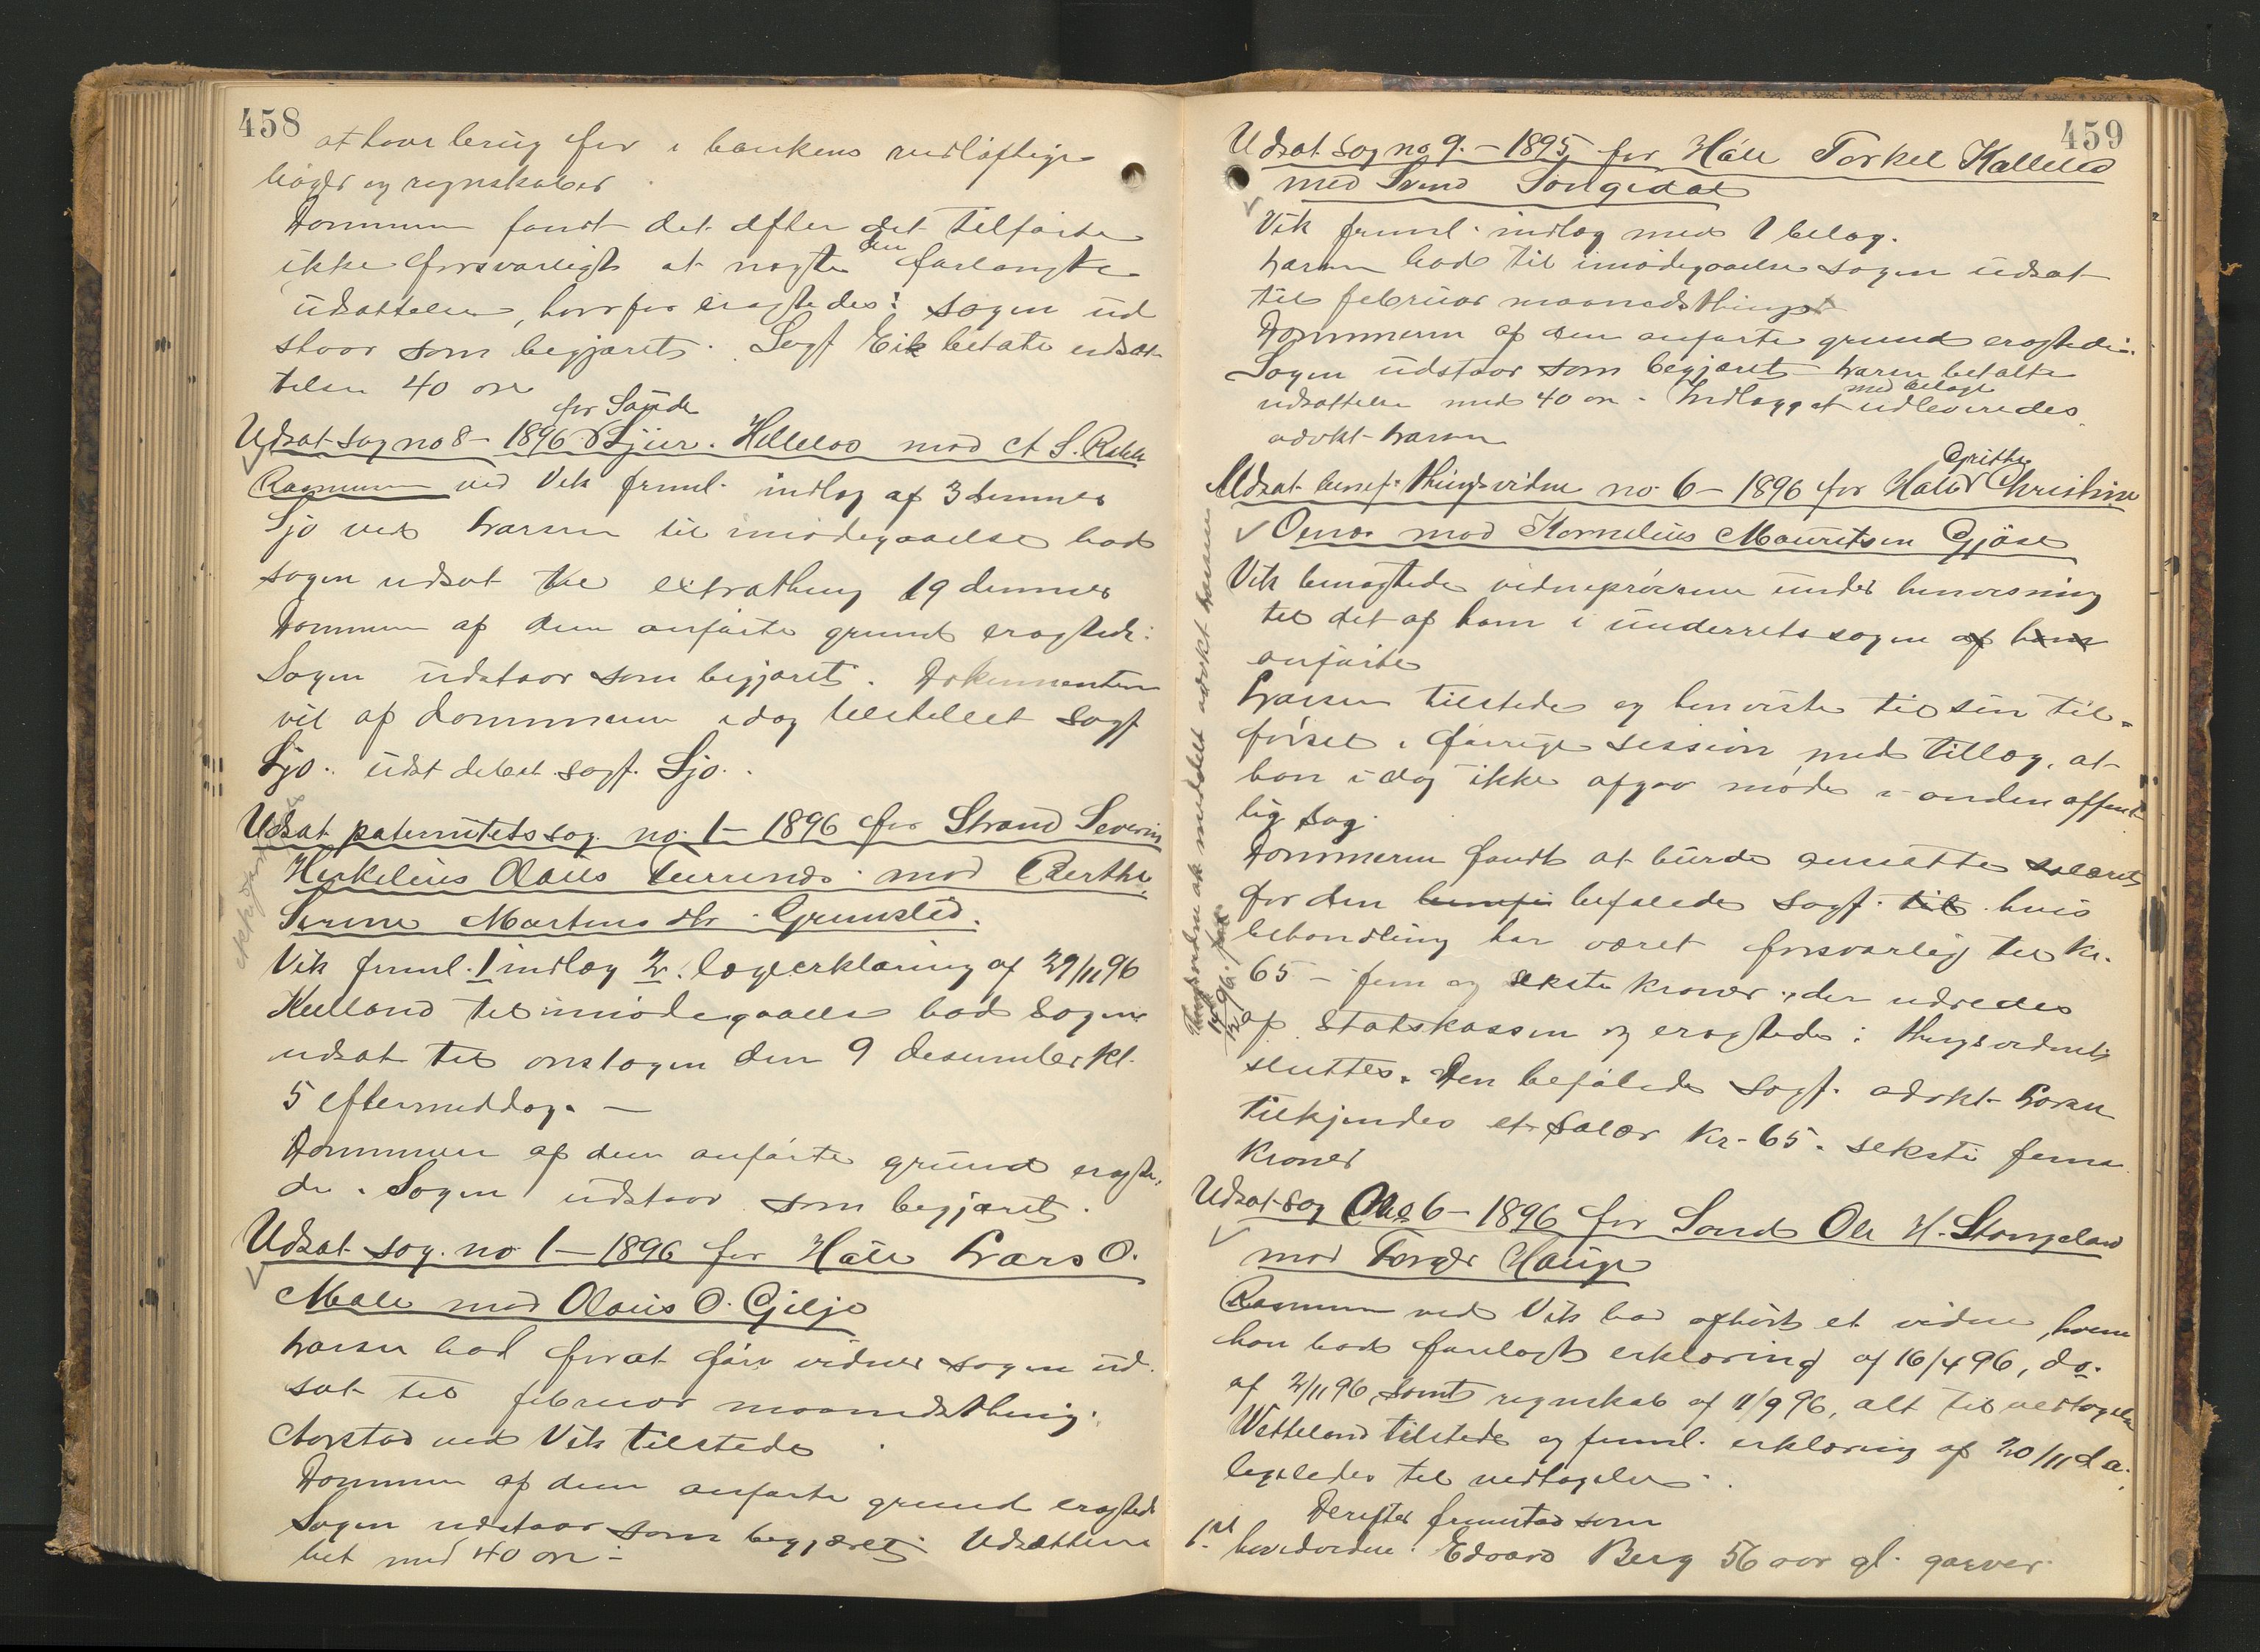 458
at have brug for i bankens vidløftige
bøger og regnskaber
Dommeren fandt det efter det tilførte
ikke forsvarligt at nægte den forlangte
udsættelse, hvorfor eragtedes: sagen ud
staar som begjæret. Sagf Eik betalte udsæt
telsen 40 øre
for Saude
Udsat sag no 8 – 1896 Helleloo mod A S. Rake
Rasmussen ved Vik freml. indlæg af 3 dennes
Sjo ved Larsen til imødegaaelse bad
sagen udsat til extrathing 19 dennes
Dommeren af den anførte grund eragtede:
Sagen udstaar som begjæret. Dokumenterne
vil af dommeren idag tilstillet Sagf
Sjo. udst debet sagf. Sjo.
Udsat paternitetssag no. 1 – 1896 for Strand Severin
Olaus mod Berthe
Serine Martinsdtr. Grimslid.
Vik freml. 1 indlæg 2. lægeerklæring af 27/11 96
Kielland til imødegaaelse bad sagen
udsat til onsdagen den 9 desember kl.
5 eftermiddag. –
Dommeren af den anførte grund eragte,
de. Sagen udstaar som begjæret.
Udsat sag. no 1 – 1896 for Haa Lars O.
Male mod Olaus O. Gilje
Larsen bad for at føre vidner sagen ud
sat til februar maanedsthing.
Aarstad ved Vik tilstede
Dommeren af den anførte grund eragtede
Sagen udstaar som begjæret. Udsættelsen
bet med 40 øre –
459
Udsat sag no 9. – 1895 for Haa Torkel Kalleld
mod Svend Songedal
Vik freml. indlæg med 1 belæg.
Larsen bad til imødegaaelse sagen udsat
til februar maanedsthinget
Dommeren af den anførte grund eragtede:
Sagen udstaar som begjæret Larsen betalte
med belæg
udsættelse med 40 øre – Indlægget udleveredes
advkt Larsen
Grithe
Udsat thingsvidne no. 6 – 1896 for Haaland Christine
mod Kornelius Mauritsen Gjøse
Vik benægtede vidneprøverne under henvisning
til det af ham i underretssagen af ham
anførte
Larsen tilstede og henviste til sin til=
førsel i forrige session med tillæg, at
han idag ikke afgav møde i anden offent
lig sag.
Dommeren fandt at burde ansætte salæret
for den befalede sagf. til hvis
behandling har været forsvarlig til kr.
65 – fem og seksti kroner, der udredes
af Statskassen og eragtede: thingsvidnet
sluttes. Den befalede sagf. advkt Larsen
tilkjendes et salær kr. 65. seksti fem
kroner
Udsat sag No 6 – 1896 for Sand Ole H. Stangeland
mod Torger Hauge
Rasmussen ved Vik bad afhørt et vidne, hvem
han bad forelagt erklæring af 16/4 96, do.
af 2/11 96 samt regnskab af 11/9 96, alt til vedtagelse
Wetteland tilstede og freml. erklæring af 20/11 d a.
ligeledes til vedtagelse.
Derefter fremstod som
1.st hovedvidne. Edvard Berg 56 aar gl. garver